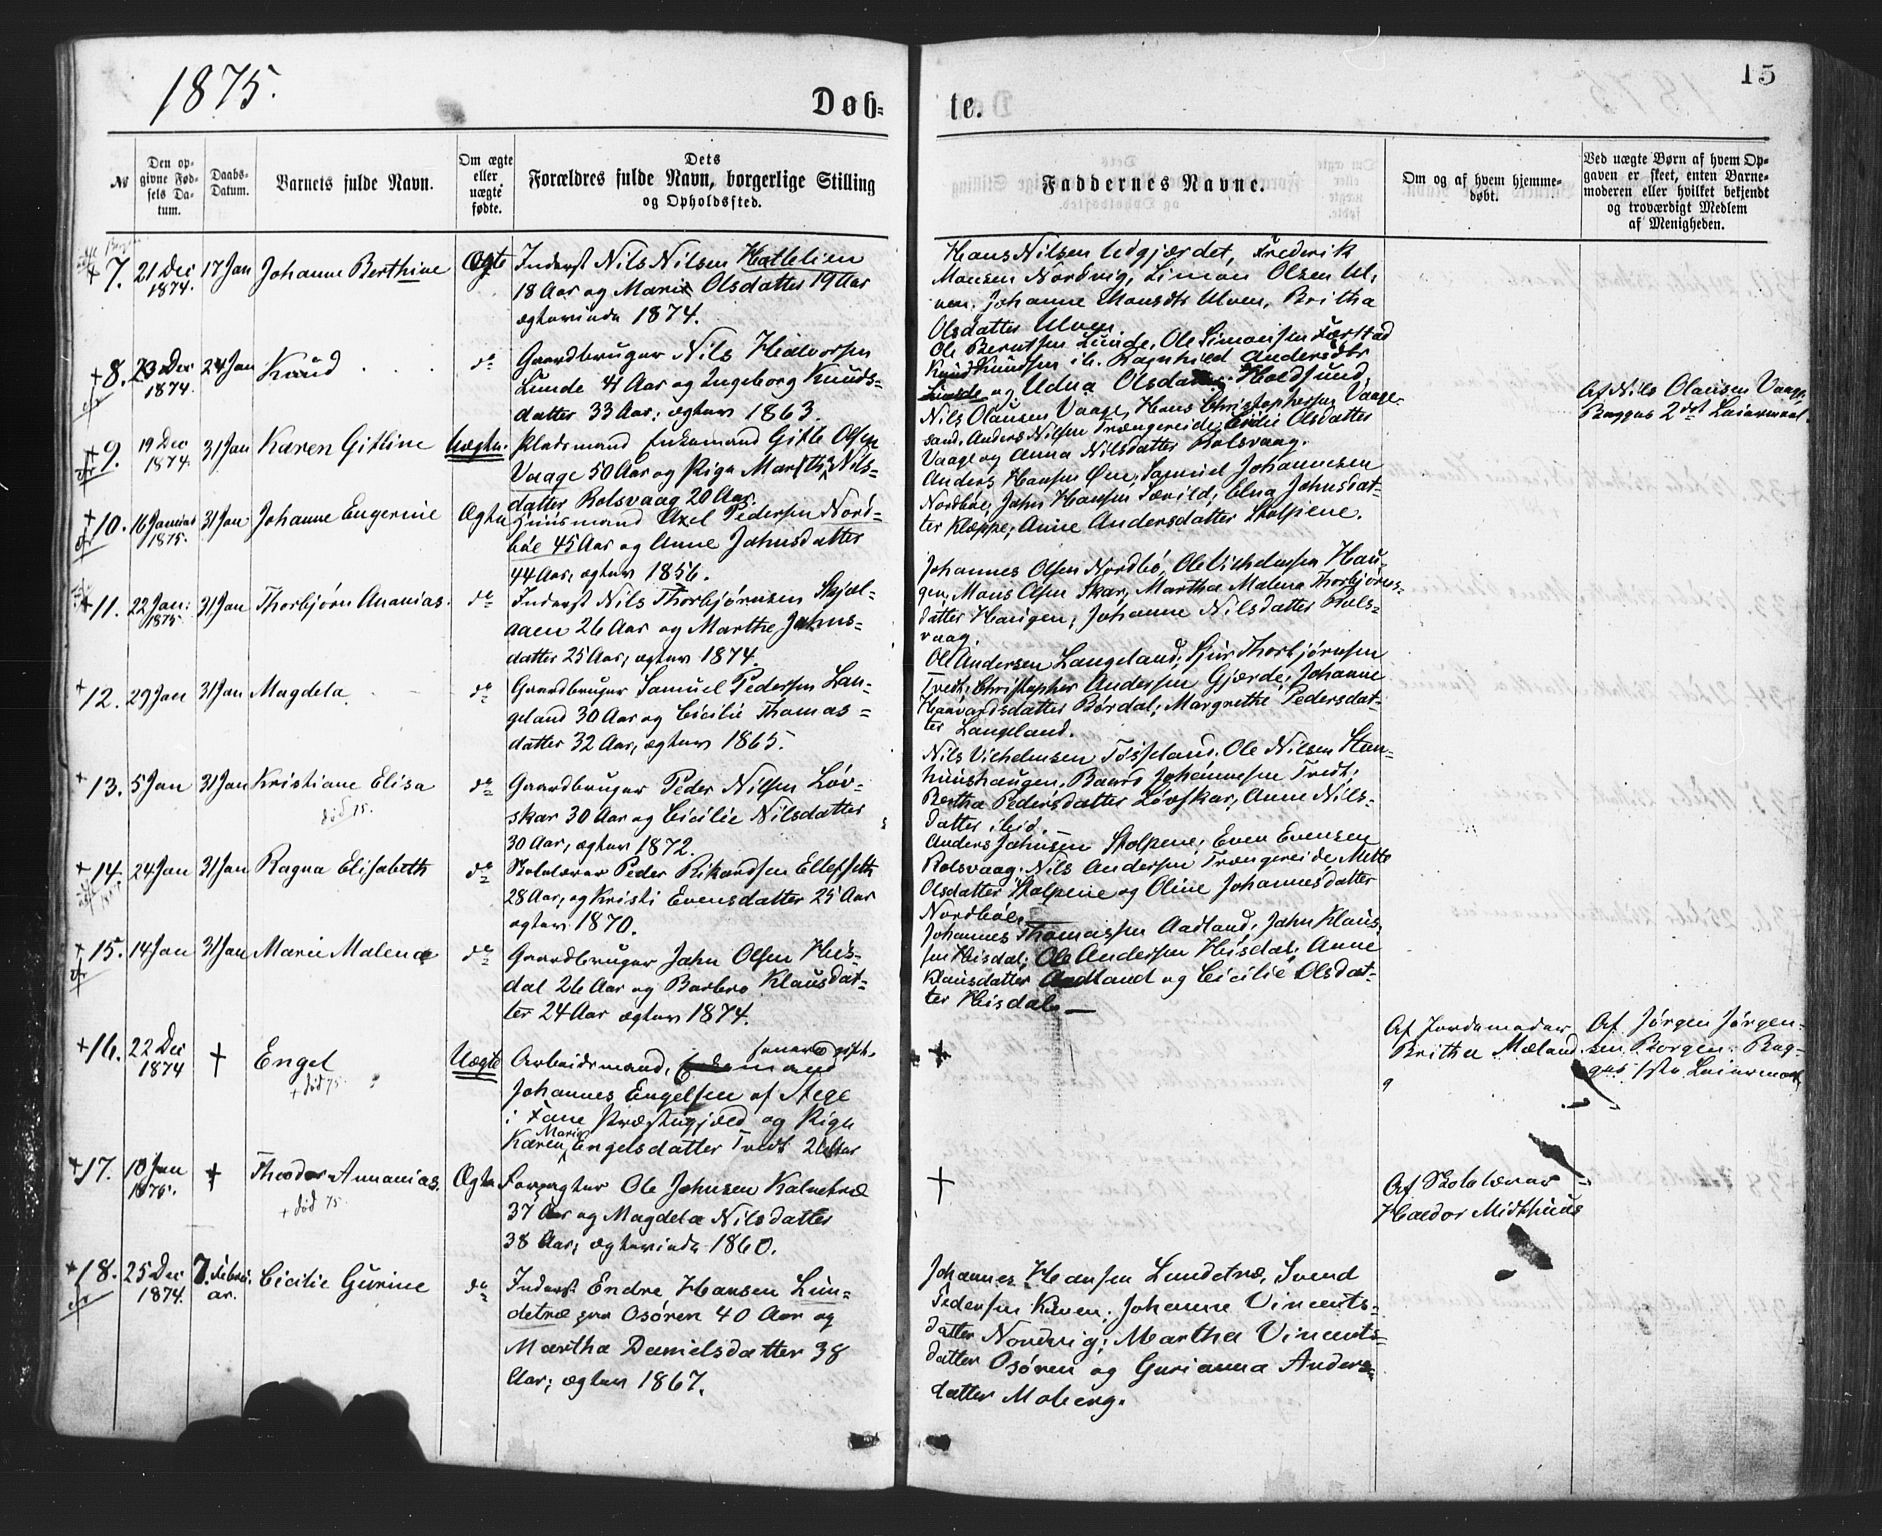 1875.
15
Døb-
te.
№
Den op-
givne Fød-
sels Da-
tum.
Daabs-
Datum.
Barnets fulde Navn.
Om ægte
eller
uægte
fødte.
Dets
Forældres fulde Navn, borgerlige Stilling
og Opholdssted.
Faddernes Navne.
Om og af hvem hjemme-
døbt.
Ved uægte Børn af hvem Op-
gaven er skeet, enten Barne-
moderen eller hvilket bekjendt
og troværdigt Medlem
af Menigheden.
+ 7. 21 Dec 1874. 17 Jan Johanne Berthine Ægte
Inderst Nils Nilsen Hatlelien
18 Aar og Marie Olsdatter 19 Aar
1874.
Hans Nilsen Udgjærdet, Frederik
Monsen Nordvig, Simon Olsen Ul-
ven. Johanne Monsdtr Ulven, Britha
Olsdatter Ulven.
+ 8. 23 Dec 1874. 24 Jan Knud do
Gaardbruger Nils Halvorsen
Lunde 41 Aar og Ingeborg Knuds-
datter 33 Aar; ægtev 1863.
Ole Berntsen Lunde, Ole Simonsen Færstad
Knud Knudsen ib. Ragnhild Andersdtr
Lunde og Udna Olsdatter Holdsund
+ 9. 19 Dec 1874. 31 Jan Karen Gitline Uægte
Pladsmand Enkemand Gitle Olsen
Vaage 50 Aar og Pige Marthe Nils-
datter Rolsvaag 20 Aar.
Nils Olausen Vaage, Hans Christophersen Vaage-
sand, Anders Nilsen Trængereide, Cicilie Olsdatter
Vaage og Anna Nilsdatter Rolsvaag.
Af Nils Olausen Vaage
Begges 2det Leiermaal.
+ 10. 16 Januar 1875. 31 Jan Johanne Engerine Ægte
Huusmand Axel Pedersen Nord-
bøe 45 Aar og Anne Jahnsdatter
44 Aar; ægtev 1856.
Anders Hansen Øen, Samuel Johannesen
Nordbøe, Jahn Hansen Særild; Elna Jahnsdat-
ter Kleppe; Anne Andersdatter Stolpene.
+ 11. 22 Jan: 1875. 31 Jan Thorbjørn Ananias. do
Inderst Nils Thorbjørnsen Skjel-
aaen 26 Aar og Marthe Jahns-
datter 25 Aar; ægtev 1874.
Johannes Olsen Nordbø, Ole Vilhelmsen Hau-
gen, Mons Olsen Skar, Martha Malena Thorbjørns-
datter Haugen; Johanne Nilsdatter Rols-
vaag.
+ 12. 29 Jan 31 Jan Magdela do
Gaardbruger Samuel Pedersen Lan-
geland 30 Aar og Cicilie Thomas-
datter 32 Aar, ægtev 1865.
Ole Andersen Langeland; Sjur Thorbjørnsen
Tvedt; Christopher Andersen Gjærde; Johanne
Haavardsdatter Bordal; Margrethe Pedersdat-
ter Langeland.
+ 13. 5 Jan 31 Jan Kristiane Elisa do
død 75.
Gaardbruger Peder Nilsen Løv-
skar 30 Aar og Cicilie Nilsdatter
30 Aar, ægtev 1872.
Nils Vilhelmsen Tøsseland. Ole Nilsen Sten-
huushaugen, Baard Johannesen Tvedt;
Bertha Pedersdatter Løvskar; Anne Nils-
datter ibid.
+ 14. 24 Jan 31 Jan Ragna Elisabeth do
Skolelærer Peder Rikardsen Ellefseth
28 Aar, og Kristi Evensdatter 25 Aar
ægtev 1870.
Anders Jahnsen Stolpene; Even Evensen
Rolsvaag; Nils Andersen Trængereide, Mette
Olsdatter Stolpene og Oline Johannesdatter
Nordbøe.
+ 15. 14 Jan 31 Jan Marie Malena do
Gaardbruger Jahn Olsen Heis-
dal 26 Aar og Barbro Klausdat-
ter 24 Aar ægtev 1874.
Johannes Thomassen Aadland, Jahn Klaus-
sen Heisdal; Ole Andersen Heisdal; Anne
Klausdatter Aadland og Cicilie Olsdat-
ter Heisdal.
+ 16. 22 Dec 1874 + Engel Uægte
+ død 75.
Arbeidsmand,
Johannes Engelsen af Stege
i Fane Præstegjæld og Pige
Karen Marie Engelsdatter Tvedt 26 Aar
+
Af Jordemoder
Britha Mæland
Af Jørgen Jørgen-
sen Borgen. Beg-
ges 1ste Leiermaal
+ 17. 10 Jan 1875. + Theodor Annanias. Ægte
+ død 75.
Forpagter Ole Johnsen Kalvetræ
37 Aar og Magdela Nilsdatter
38 Aar; 1860.
+
Af Skolelærer
Haldor Midthuus
+ 18. 25 Dec 1874. 7 Febru-
ar. Cicilie Gurine do
Inderst Endre Hansen Lun-
detræ Osøren 40 Aar og
Martha Danielsdatter 38
Aar; ægtev 1867.
Johannes Hansen Lundetræ, Svend
Pedersen Kuven. Johanne Vincents-
datter Nordvig; Martha Vincents-
datter Osøren og Gurianna Anders-
datter Moberg.